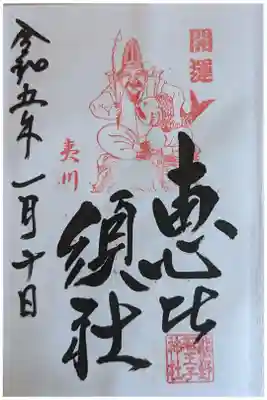 開運
夷川
恵比
須社
令和五年一月十日
熊野
若王子
神社